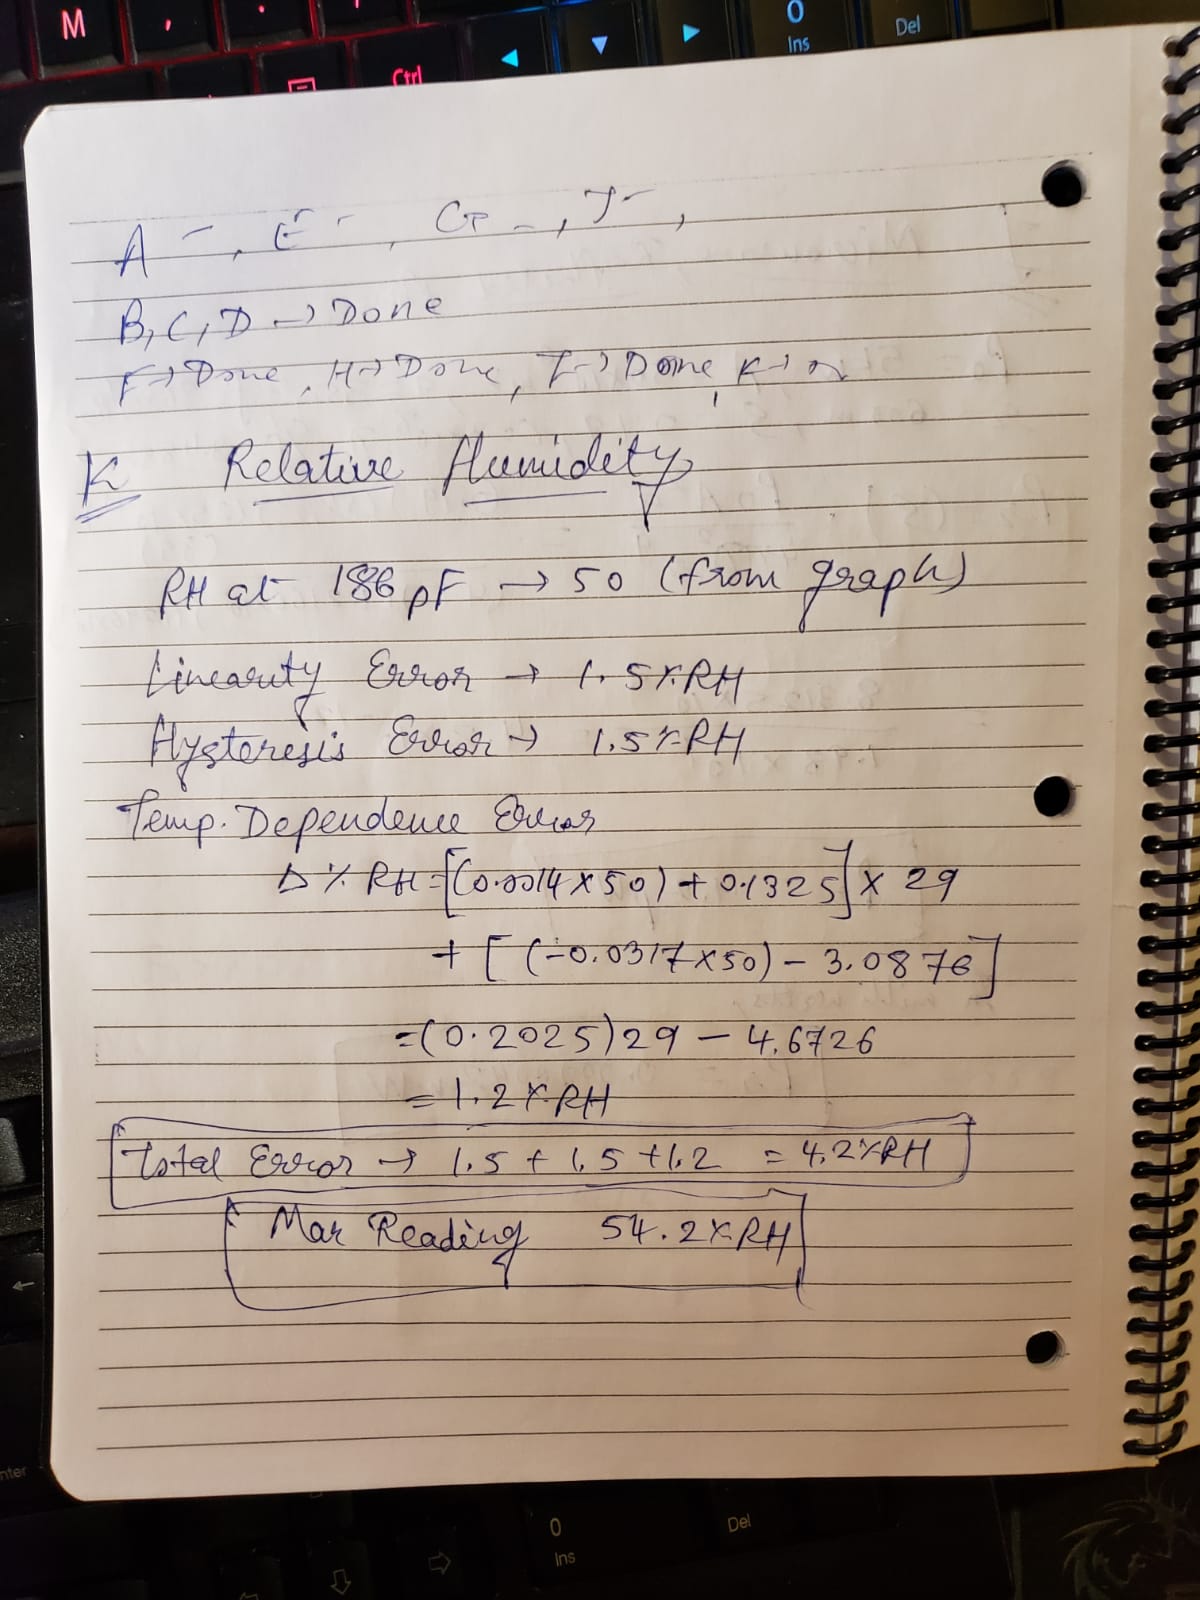 M
,
.
Ctrl
0
Ins
Del
A - , E - , G - , J - ,
B, C, D → Done
F → Done , H → Done , I → Done , K →
K Relative Humidity
RH at 186 pF → 50 (from graph)
Linearity Error → 1.5%RH
Hysteresis Error → 1.5%RH
Temp. Dependence Error
Δ % RH = [(0.0014 × 50) + 0.1325] × 29
+ [(-0.0317 × 50) - 3.0876]
= (0.2025) 29 - 4.6726
= 1.2% RH
Total Error → 1.5 + 1.5 + 1.2 = 4.2%RH
Max Reading 54.2%RH
nter
0
Ins
Del